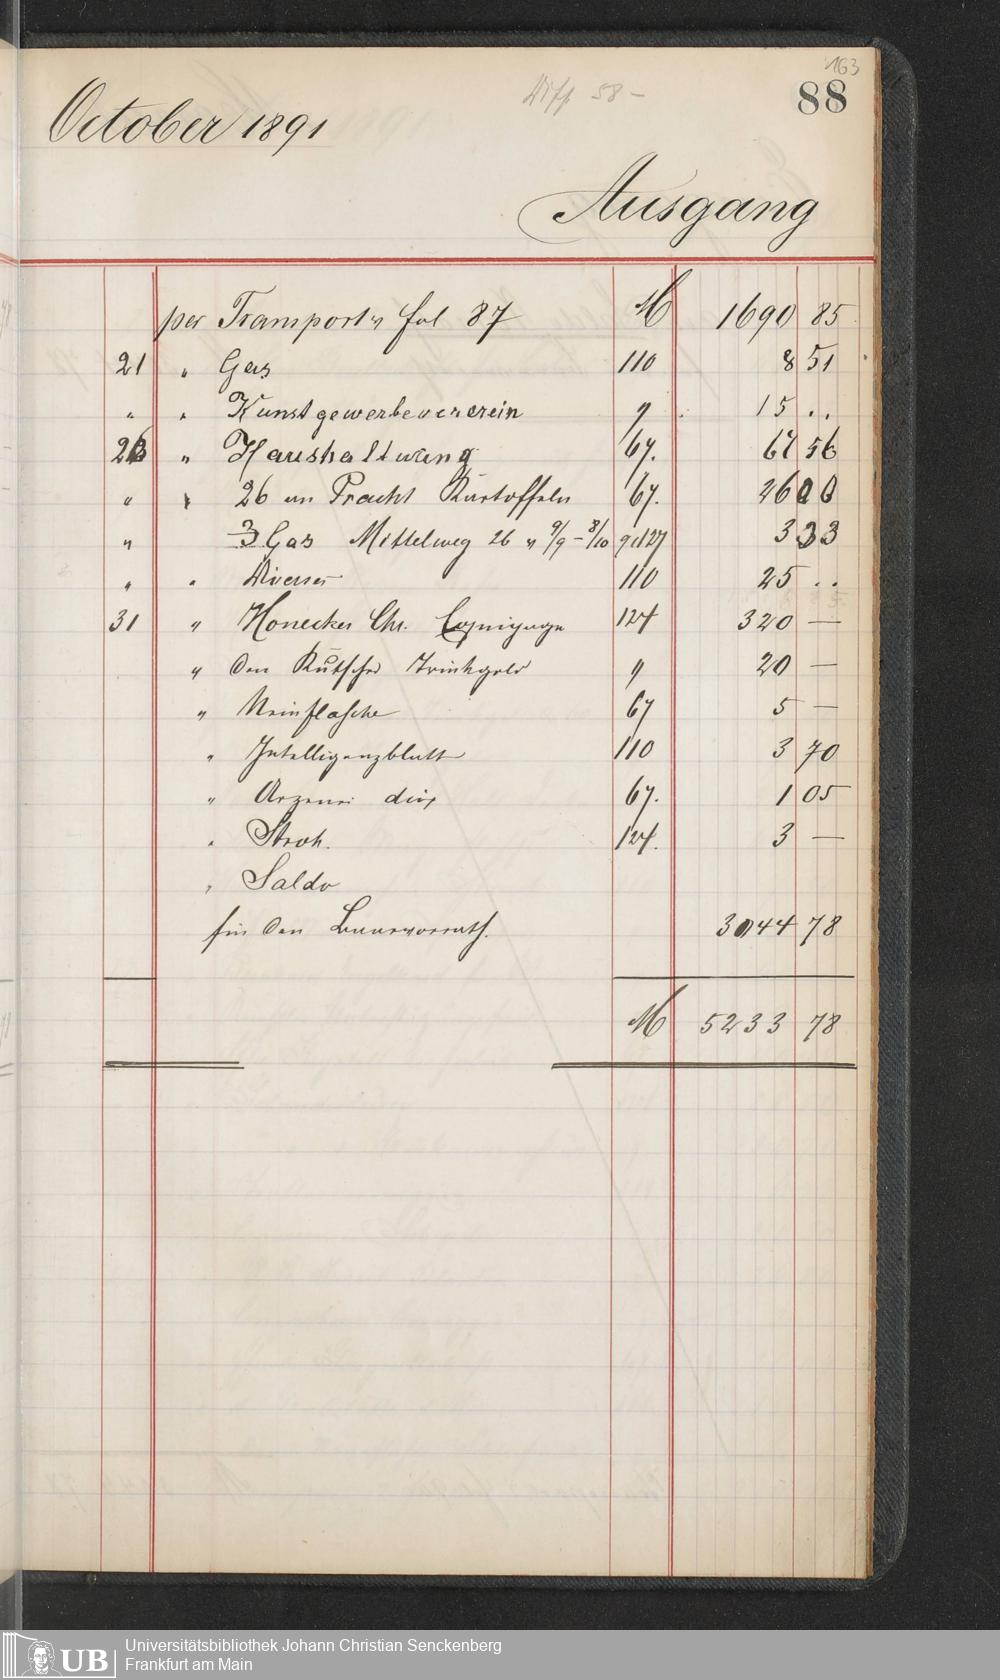 163
Diff 58 –
88
October 1891
Ausgang
per Transport v fol 87 M 1690 85
21 " Gas 110 8 51
" " Kunstgewerbeverein " 15 . .
26 " Haushaltung 67. 67 56
" " 26 an Pracht Kartoffeln 67. 26 00
" 3 Gas Mittelweg 26 v 9/9 – 8/10 127 3 33
" " Diverses 110 25 . .
31 " Honecker Chr. Equipage 124 320 —
" den Kutscher Trinkgeld " 20 —
" Weinflasche 67 5 —
" Intelligenzblatt 110 3 70
" Arzenei 67. 1 05
" Stroh. 124. 3 —
" Saldo
für den Baarvorrath. 3044 78
M 5233 78
UB Universitätsbibliothek Johann Christian Senckenberg
Frankfurt am Main